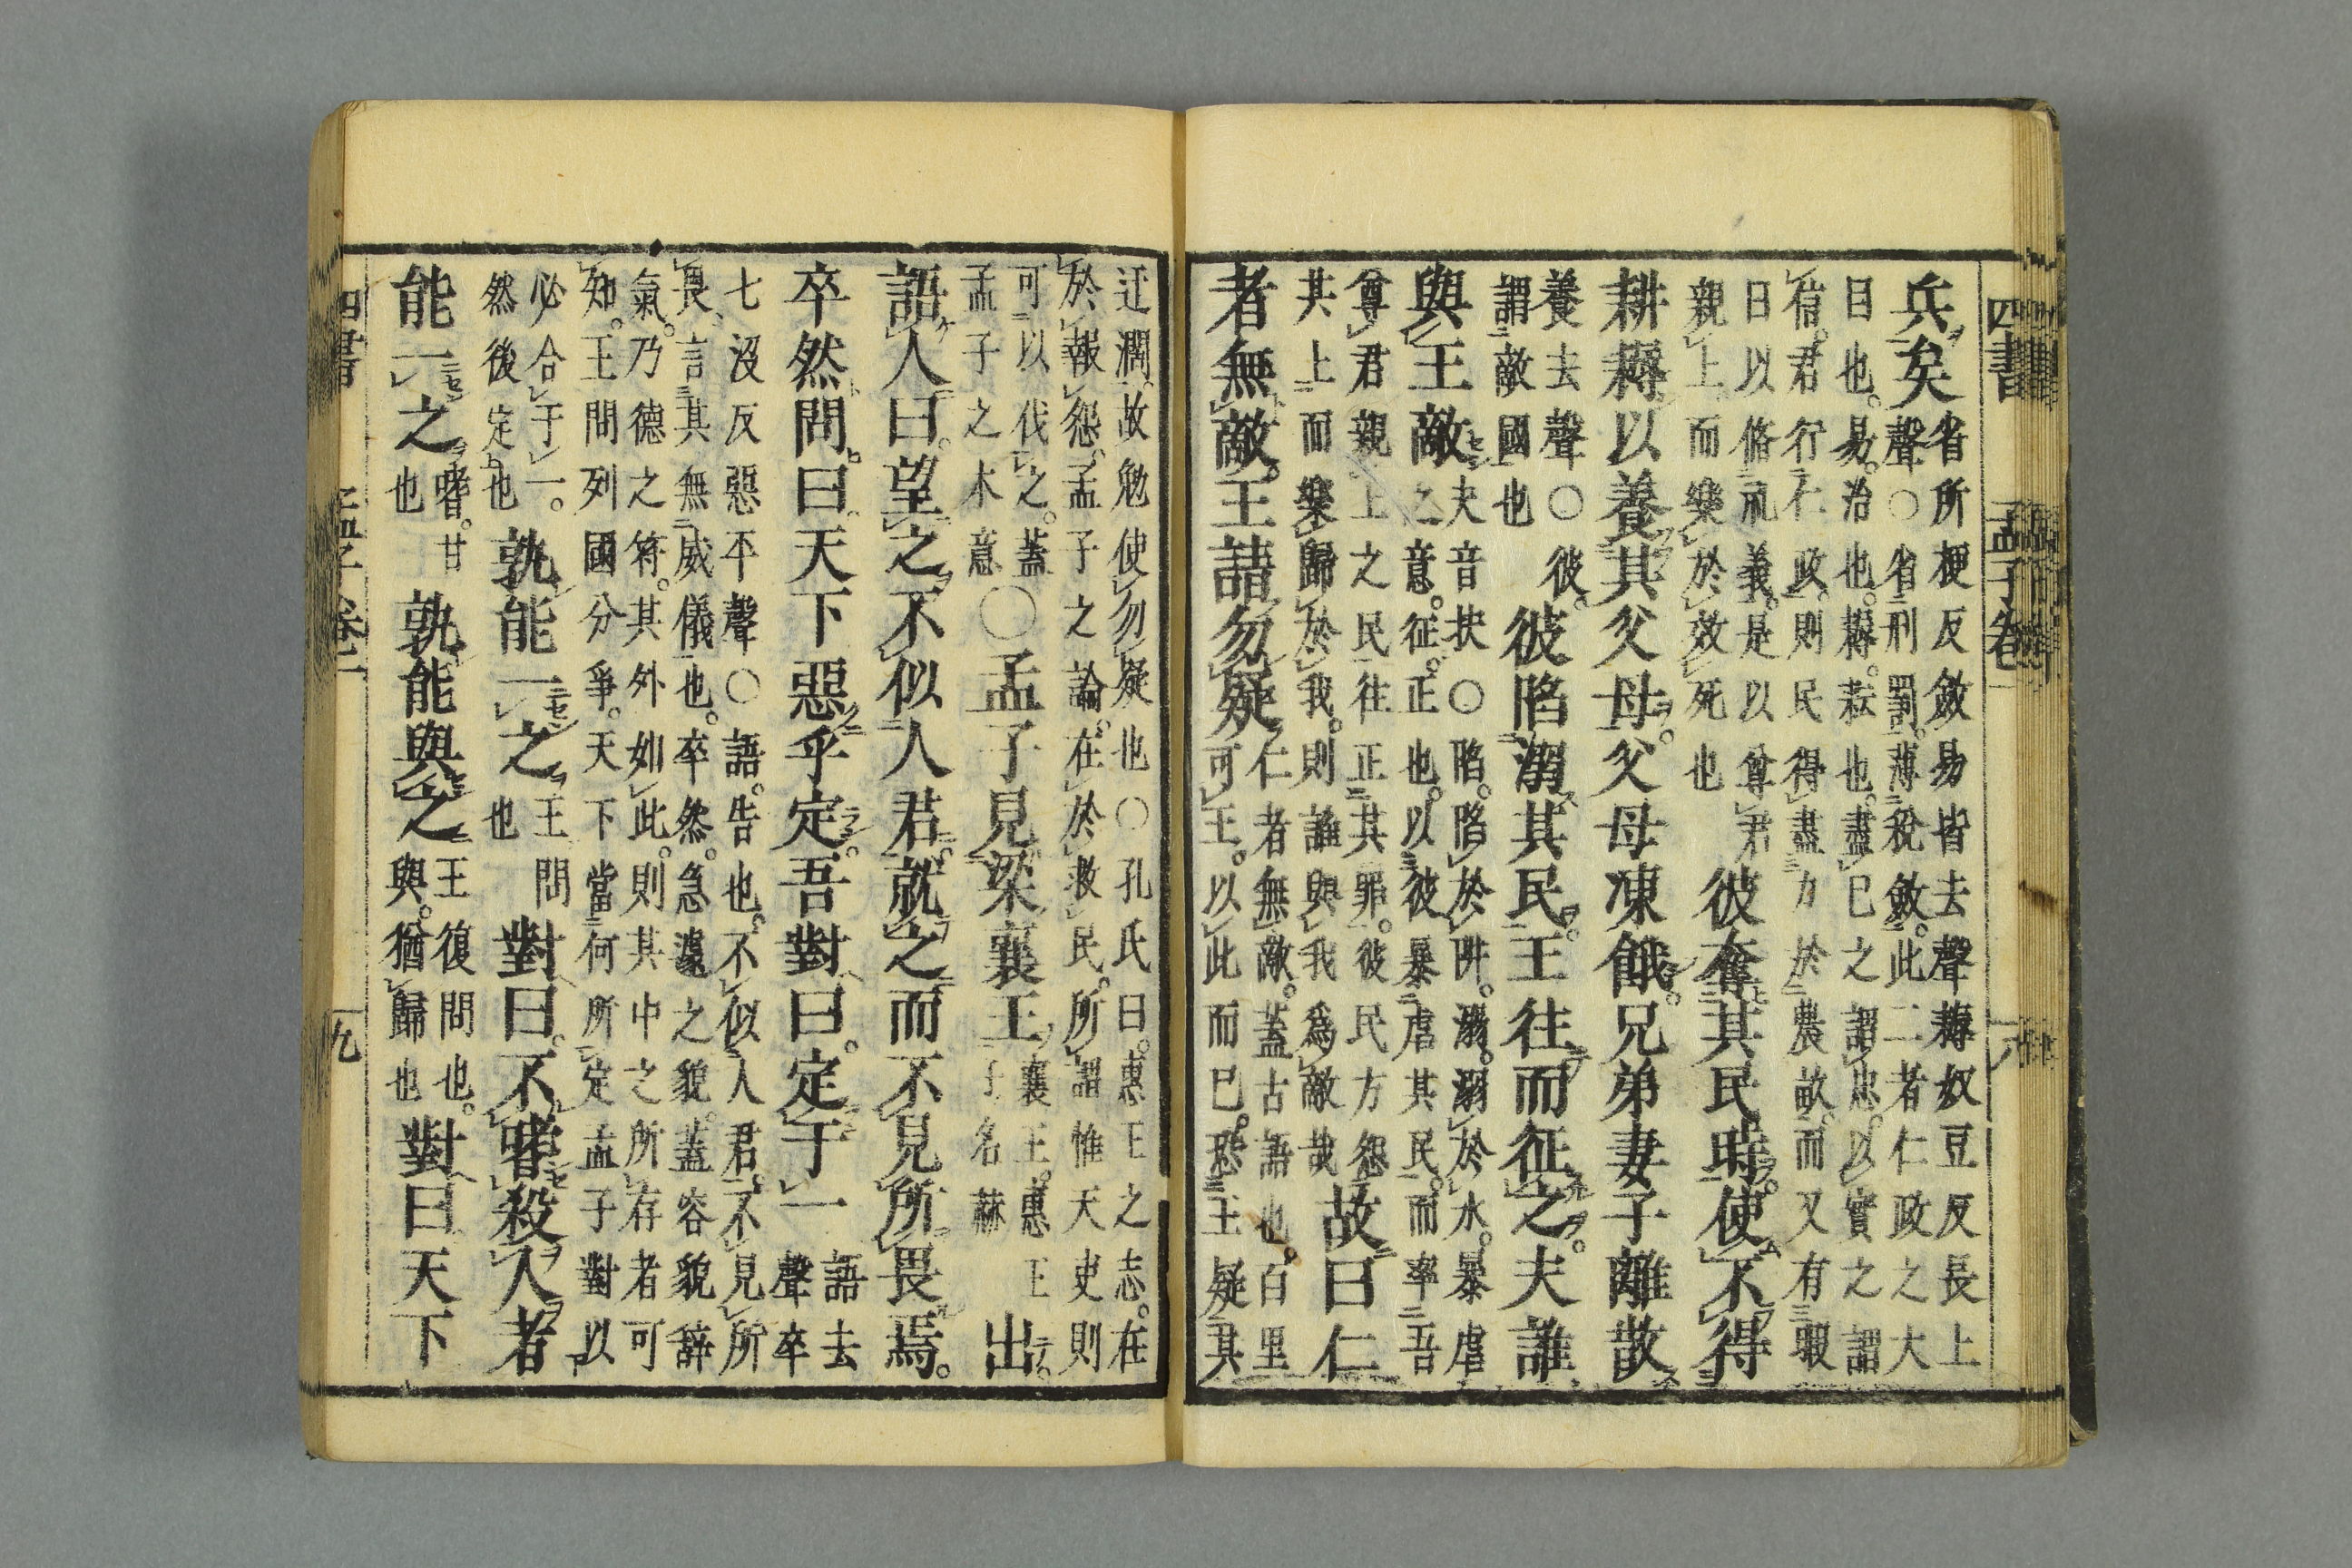 四書 孟子卷一 八
兵矣省所梗反斂易皆去聲耨奴豆反長上
聲○省刑罰薄稅斂此二者仁政之大
目也易治也耨耘也盡己之謂忠以實之謂
信君行仁政則民得盡力於農畝而又有暇
日以脩礼義是以尊君
親上而樂於效死也彼奪其民時使不得
耕耨以養其父母父母凍餓兄弟妻子離散
養去聲○彼
謂敵國也彼陷溺其民王往而征之夫誰
與王敵夫音扶○陷陷於阱溺溺於水暴虐
之意征正也以彼暴虐其民而率吾
尊君親上之民往正其罪彼民方怨
其上而樂歸於我則誰與我為敵哉故曰仁
者無敵王請勿疑仁者無敵蓋古語也百里
可王以此而已恐王疑其
迂濶故勉使勿疑也○孔氏曰惠王之志在
於報怨孟子之論在於救民所謂惟天吏則
可以伐之蓋
孟子之本意○孟子見梁襄王襄王惠王
子名赫出
語人曰望之不似人君就之而不見所畏焉
卒然問曰天下惡乎定吾對曰定于一語去
聲卒
七沒反惡平聲○語告也不似人君不見所
畏言其無威儀也卒然急遽之貌蓋容貌辭
氣乃德之符其外如此則其中之所存者可
知王問列國分爭天下當何所定孟子對以
必合于一
然後定也孰能一之王問
也對曰不嗜殺人者
能一之嗜甘
也孰能與之王復問也
與猶歸也對曰天下
四書 孟子卷一 九